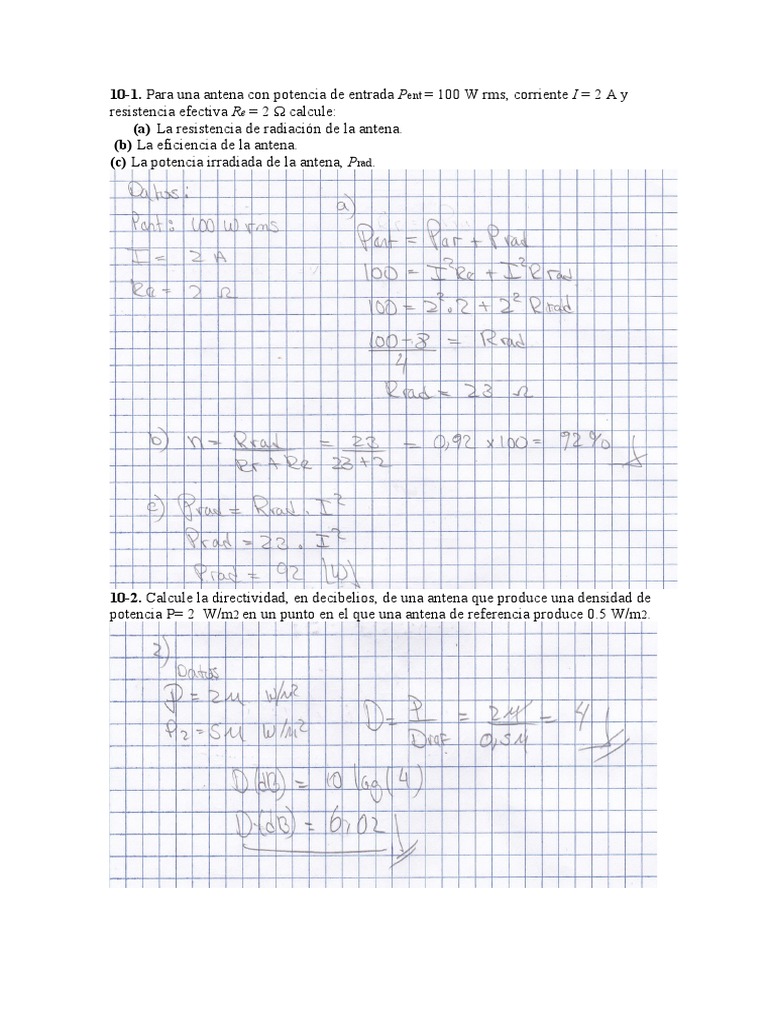 10-1. Para una antena con potencia de entrada Pent = 100 W rms, corriente I = 2 A y
resistencia efectiva Re = 2 Ω calcule:
(a) La resistencia de radiación de la antena.
(b) La eficiencia de la antena.
(c) La potencia irradiada de la antena, Prad.
Datos:
Pant: 100 W rms
I = 2 A
Re = 2 Ω
a)
Pant = Par + Prad
100 = I²Re + I²Rrad
100 = 2².2 + 2² Rrad
100-8 / 4 = Rrad
Rrad = 23 Ω
b) n = Rrad / Rr + Re = 23 / 23+2 = 0,92 x100 = 92%
c) Prad = Rrad . I²
Prad = 23 . I²
Prad = 92 [W]
10-2. Calcule la directividad, en decibelios, de una antena que produce una densidad de
potencia P= 2 W/m2 en un punto en el que una antena de referencia produce 0.5 W/m2.
2)
Datos
P = 2M W/M²
P2 = 5M W/M²
D = P / Dref = 2M / 0,5M = 4
D(dB) = 10 log(4)
D(dB) = 6,02